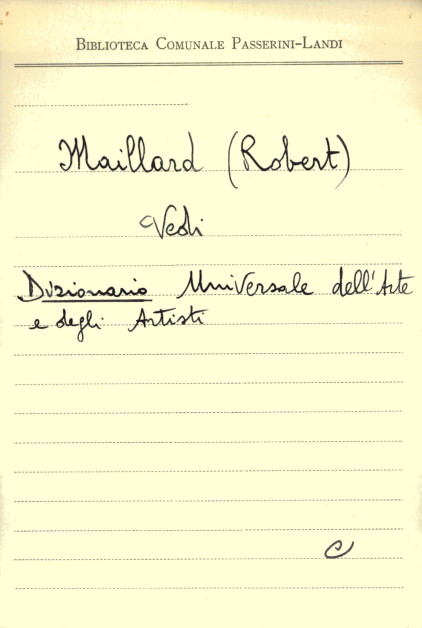 BIBLIOTECA COMUNALE PASSERINI-LANDI
Maillard (Robert)
Vedi
Dizionario Universale dell'Arte
e degli Artisti
C